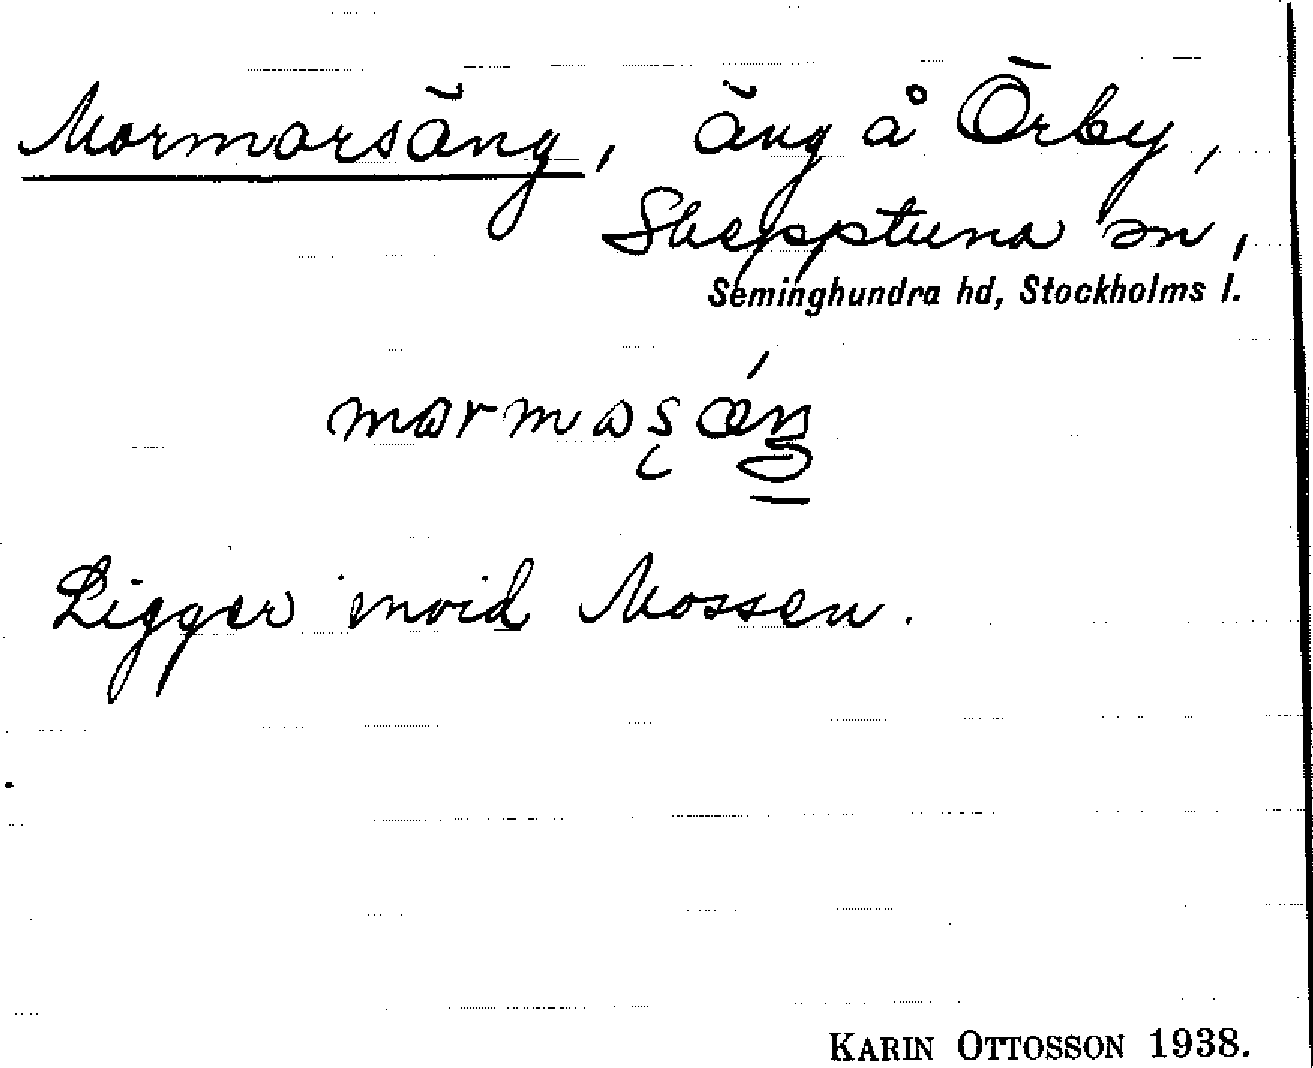 Mormorsäng, äng å Örby,
Skepptuna sn,
Seminghundra hd, Stockholms l.
Ligger invid Mossen.
KARIN OTTOSSON 1938.